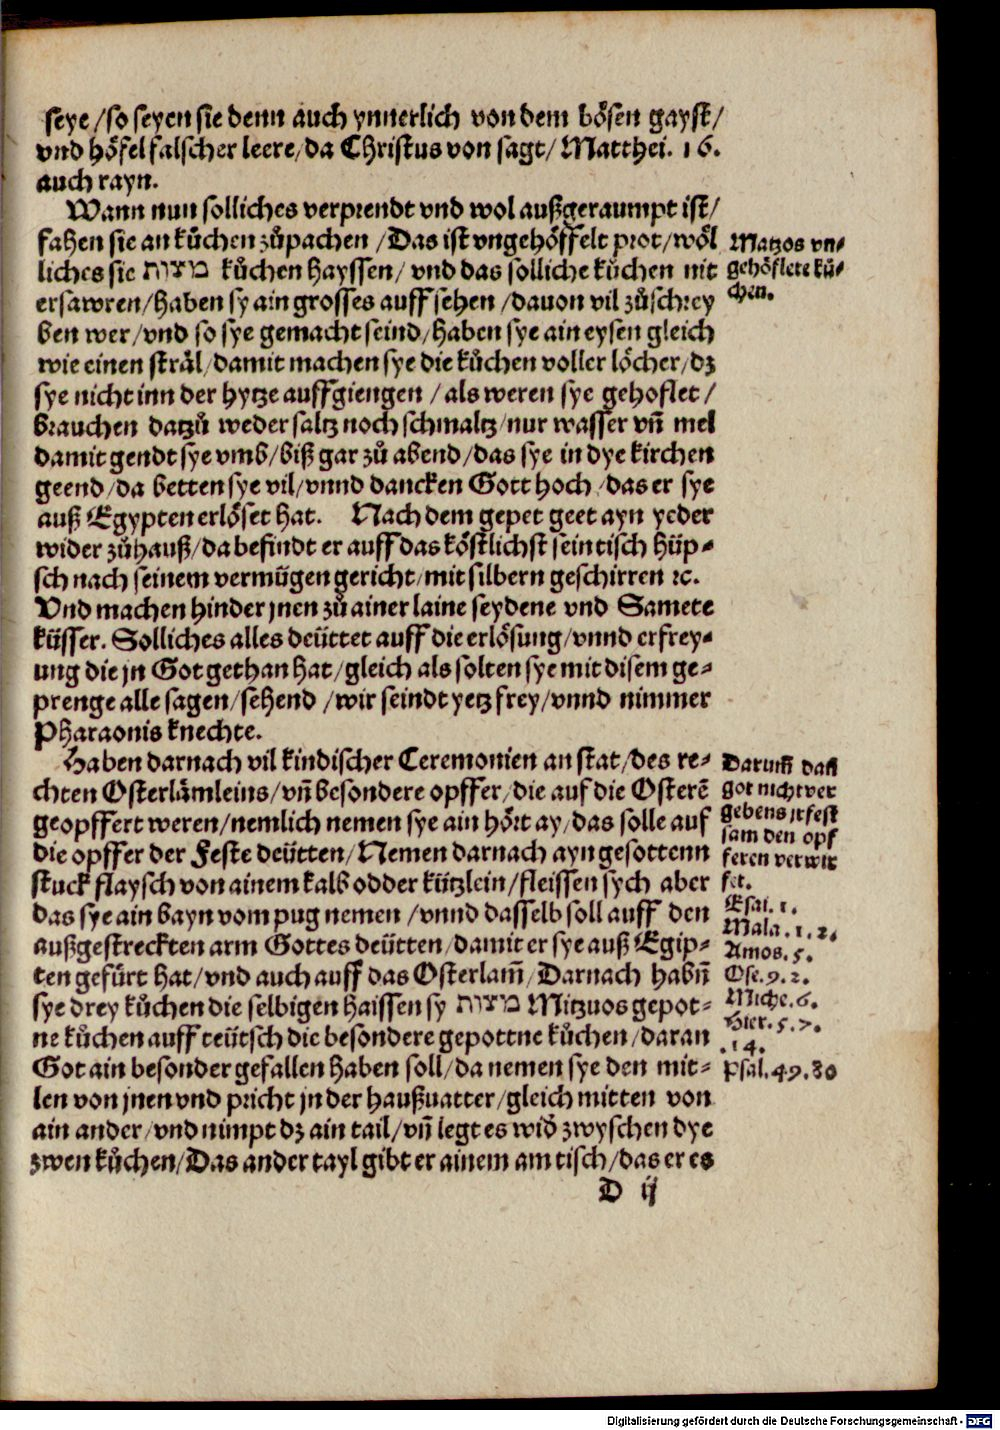 seye /so seyen sie denn auch ynnerlich von dem bösen gayst/
vnd höfel falscher leere/da Christus von sagt/ Matthei. 16.
auch rayn.
Wann nun solliches verprendt vnd wol außgeraumpt ist/
fahen sie an kůchen zůpachen /Das ist vngehöffelt prot/wöl
liches sie מצות kůchen hayssen/ vnd das solliche kůchen nit
ersawren/haben sy ain grosses auffsehen /dauon vil zůschrey
ben wer/vnd so sye gemacht seind/haben sye ain eysen gleich
wie einen sträl/damit machen sye die kůchen voller löcher/dz
sye nicht inn der hytze auffgiengen /als weren sye gehoflet/
brauchen datzů weder saltz noch schmaltz/nur wasser vñ mel
damit gendt sye vmb/biß gar zů abend/das sye in dye kirchen
geend/da betten sye vil/vnnd dancken Gott hoch /das er sye
auß Egypten erlöset hat. Nach dem gepet geet ayn yeder
wider zůhauß/da befindt er auff das köstlichst sein tisch hüp⸗
sch nach seinem vermügen gericht/mit silbern geschirren ꝛc.
Vnd machen hinder jnen zů ainer laine seydene vnd Samete
küsser. Solliches alles deüttet auff die erlösung/vnnd erfrey⸗
ung die jn Got gethan hat/gleich als solten sye mit disem ge⸗
prenge alle sagen/sehend /wir seindt yetz frey/vnnd nimmer
Pharaonis knechte.
Haben darnach vil kindischer Ceremonien an stat/des re⸗
chten Osterlämleins/vñ besondere opffer/die auf die Osterẽ
geopffert weren/nemlich nemen sye ain hört ay/das solle auf
die opffer der Feste deütten/Nemen darnach ayn gesottenn
stuck flaysch von ainem kalb odder kützlein/fleissen sych aber
das sye ain bayn vom pug nemen /vnnd dasselb soll auff den
außgestreckten arm Gottes deütten/damit er sye auß Egip⸗
ten gefürt hat/vnd auch auff das Osterlam̃/Darnach habñ
sye drey kůchen die selbigen haissen sy מצות Mitzuos gepot⸗
ne kůchen auff teütsch die besondere gepottne kůchen/daran
Got ain besonder gefallen haben soll/da nemen sye den mit⸗
len von jnen vnd pricht jn der haußuatter/gleich mitten von
ain ander/vnd nimpt dz ain tail/vñ legt es wid̾ zwyschen dye
zwen kůchen/Das ander tayl gibt er ainem am tisch/das er es
D ij
Matzos vn⸗
gehöflete ků⸗
chen.
Darum̃ dañ
got nicht ver
gebens jr fest
sam den opf
feren verwir
fet.
Esai. 1.
Mala. 1. 2.
Amos. 5.
Ose. 9. 2.
Miche. 6.
Hier. 5. 7.
. 14.
Psal. 49. 80
Digitalisierung gefördert durch die Deutsche Forschungsgemeinschaft - DFG